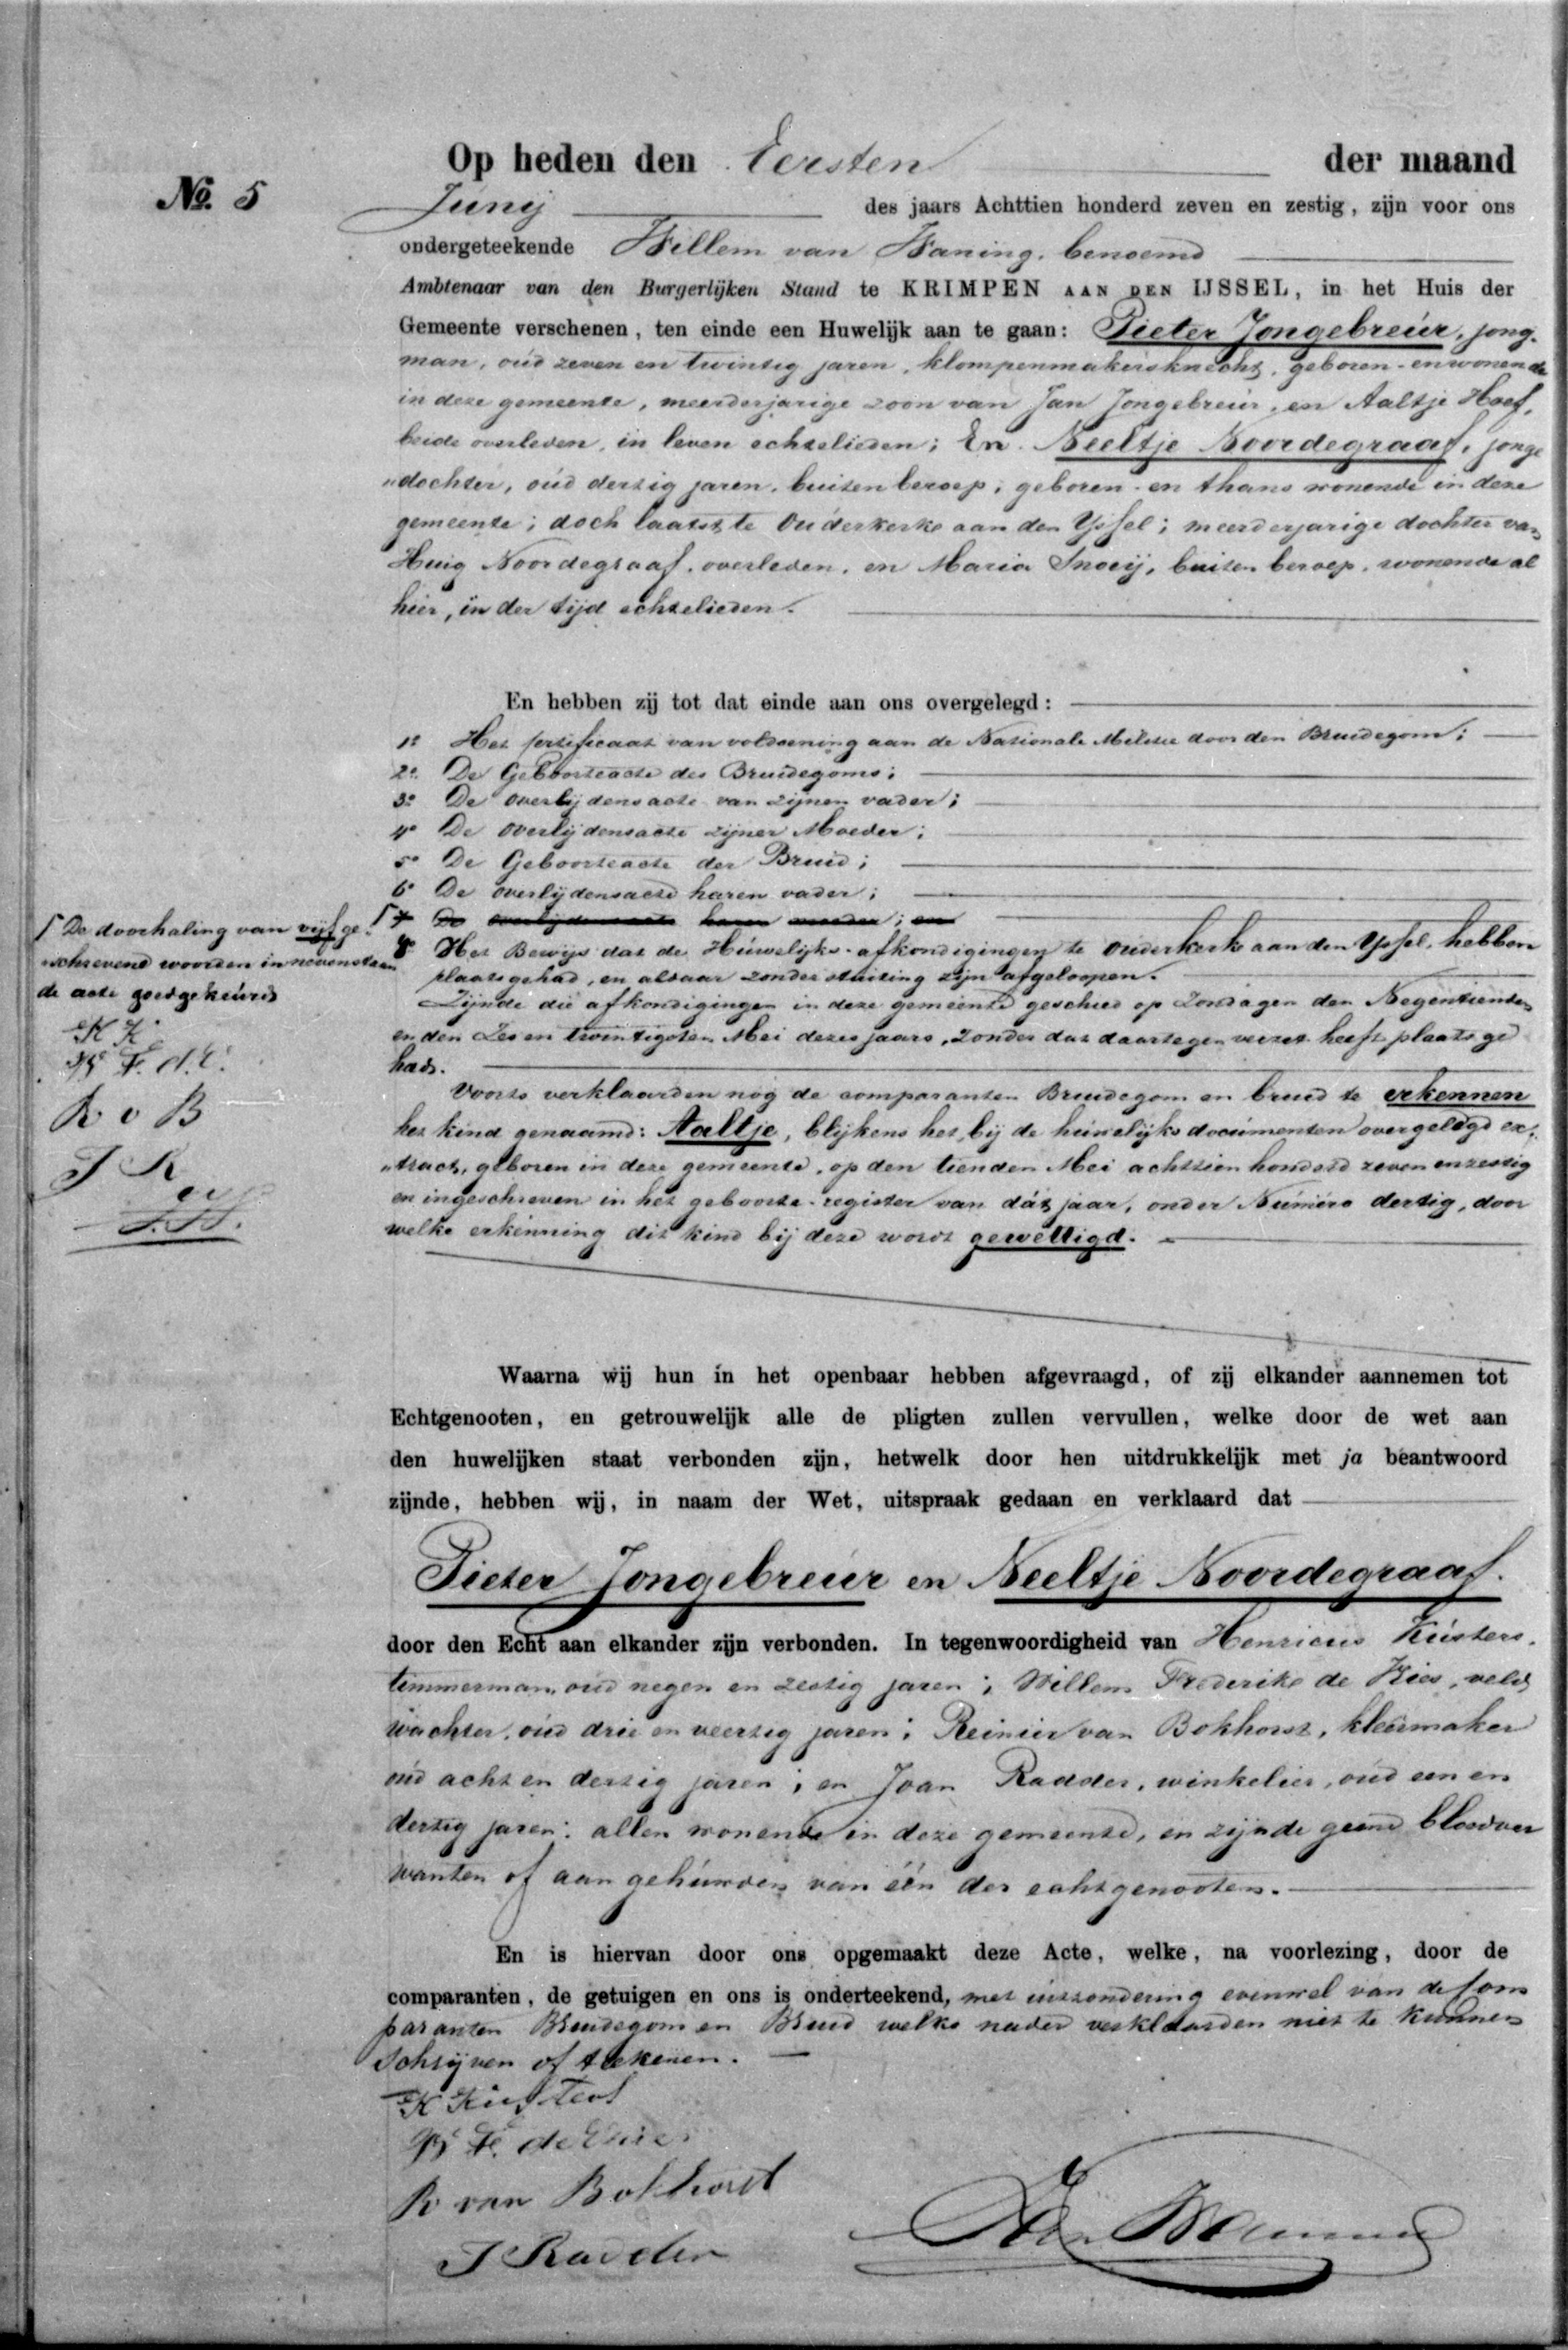 No. 5
Op heden den Eersten der maand
Junij des jaars Achttien honderd zeven en zestig, zijn voor ons
ondergeteekende Willem van Waning, benoemd
Ambtenaar van den Burgerlijken Stand te KRIMPEN AAN DEN IJSSEL, in het Huis der
Gemeente verschenen, ten einde een Huwelijk aan te gaan: Pieter Jongebreur, jong-
man, oud zeven en twintig jaren, klompenmakersknecht, geboren- en wonende
in deze gemeente, meerderjarige zoon van Jan Jongebreur, en Aaltje Hoef,
beide overleden, in leven echtelieden; En Neeltje Noordegraaf, jonge
"dochter, oud dertig jaren, buiten beroep, geboren- en thans wonende in deze
gemeente; doch laatst te Ouderkerk aan den Yssel; meerderjarige dochter van
Huig Noordegraaf, overleden, en Maria Snoeij, buiten beroep, wonende al
hier, in der tijd echtelieden.
En hebben zij tot dat einde aan ons overgelegd:
1o Het certificaat van voldoening aan de Nationale Militie door den Bruidegom;
2o De Geboorteacte des Bruidegoms;
3o De overlijdensacte van zijnen vader;
4o De overlijdensacte zijner Moeder;
5o De Geboorteacte der Bruid;
6o De overlijdensacte haren vader;
7 De overlijdensacte harer moeder; en
8o Het Bewijs dat de Huwelijks-afkondigingen te Ouderkerk aan den Yssel, hebben
plaats gehad, en aldaar zonder stuiting zijn afgeloopen.
Zijnde die afkondigingen in deze gemeente geschied op Zondagen den Negentienden
en den Zes en twintigsten Mei dezes jaars, zonder dat daartegen verzet heeft plaats ge
had.
Voorts verklaarden nog de comparanten Bruidegom en bruid te erkennen
het kind genaamd: Aaltje, blijkens het, bij de huwelijks documenten overgelegd ex-
"tract, geboren in deze gemeente, op den tienden Mei achttien honderd zeven en zestig
en ingeschreven in het geboorte-register van dát jaar, onder Numero dertig, door
welke erkenning dit kind bij deze wordt gewettigd.
De doorhaling van vijf ge-
"schrevene woorden in nevenstaan
de acte goedgekeurd
H K
W F. d. K.
R v B
J R
Waarna wij hun in het openbaar hebben afgevraagd, of zij elkander aannemen tot
Echtgenooten, en getrouwelijk alle de pligten zullen vervullen, welke door de wet aan
den huwelijken staat verbonden zijn, hetwelk door hen uitdrukkelijk met ja beantwoord
zijnde, hebben wij, in naam der Wet, uitspraak gedaan en verklaard dat
Pieter Jongebreur en Neeltje Noordegraaf.
door den Echt aan elkander zijn verbonden. In tegenwoordigheid van Henricus Kusters,
timmerman, oud negen en zestig jaren; Willem Frederike de Kies, veld
wachter, oud drie en veertig jaren; Reinier van Bokhorst, kleermaker
oud acht en dertig jaren; en Joan Radder, winkelier, oud een en
dertig jaren; allen wonende in deze gemeente, en zijnde geene bloedver
wanten of aangehuwden van één der echtgenooten.
En is hiervan door ons opgemaakt deze Acte, welke, na voorlezing, door de
comparanten, de getuigen en ons is onderteekend, met uitzondering evenwel van de Com
paranten Bruidegom en Bruid welke nader verklaarden niet te kunnen
schrijven of teekenen.
H Kusters
W F. de Kies
R van Bokhorst
J Radder
W van Waning